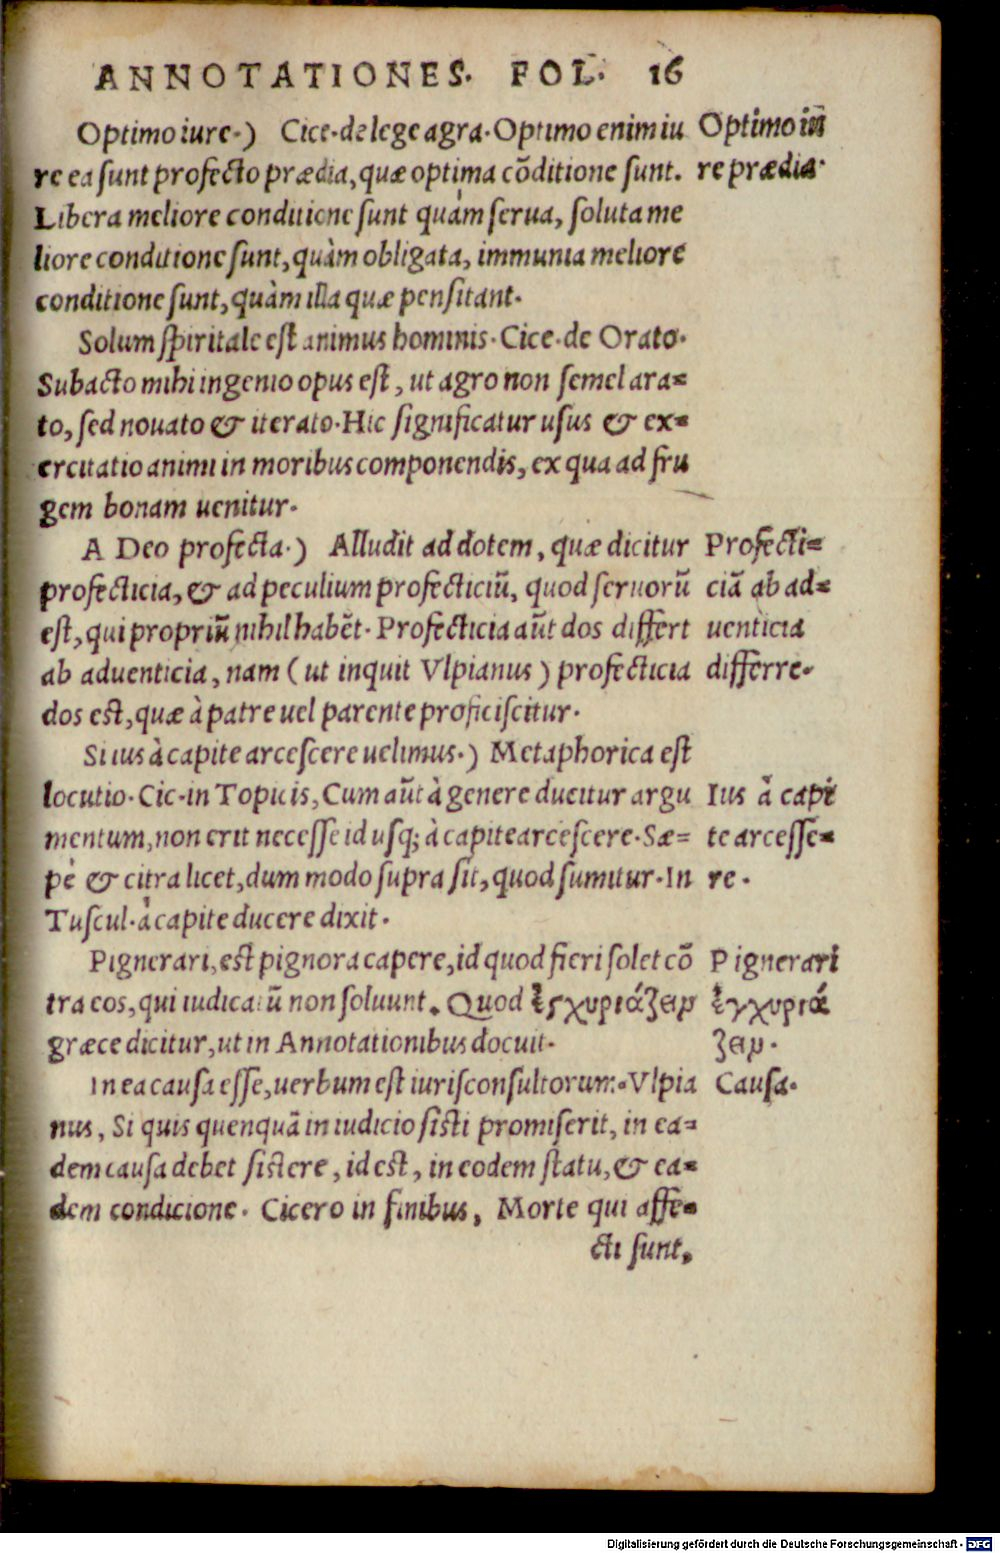 ANNOTATIONES. FOL. 16
Optimo iure.) Cice. de lege agra. Optimo enim iu
re ea sunt profecto prædia, quæ optima cōditione sunt.
Libera meliore conditione sunt quàm serua, soluta me
liore conditione sunt, quàm obligata, immunia meliore
conditione sunt, quàm illa quæ pensitant.
Optimo iu
re prædia.
Solum spiritale est animus hominis. Cice. de Orato.
Subacto mihi ingenio opus est, ut agro non semel ara=
to, sed nouato & iterato. Hic significatur usus & ex=
ercitatio animi in moribus componendis, ex qua ad fru
gem bonam uenitur.
A Deo profecta.) Alludit ad dotem, quæ dicitur
profecticia, & ad peculium profecticiū, quod seruorū
est, qui propriū nihil habēt. Profecticia aūt dos differt
ab aduenticia, nam (ut inquit Vlpianus) profecticia
dos est, quæ à patre uel parente proficiscitur.
Profecti=
ciā ab ad=
uenticia
differre.
Si ius à capite arcescere uelimus.) Metaphorica est
locutio. Cic. in Topicis, Cum aūt à genere ducitur argu
mentum, non erit necesse id usq; à capite arcescere. Sæ=
pè & citra licet, dum modo supra sit, quod sumitur. In
Tuscul. à capite ducere dixit.
Ius à capi
te arcesse=
re.
Pignerari, est pignora capere, id quod fieri solet cō
tra eos, qui iudicatū non soluunt. Quod ἐγχυριάζειν
græce dicitur, ut in Annotationibus docuit.
Pignerari
ἐγχυριά
ζειν.
In ea causa esse, uerbum est iurisconsultorum. Vlpia
nus, Si quis quenquā in iudicio sisti promiserit, in ea=
dem causa debet sistere, id est, in eodem statu, & ea=
dem condicione. Cicero in finibus, Morte qui affe=
cti sunt,
Causa.
Digitalisierung gefördert durch die Deutsche Forschungsgemeinschaft - DFG